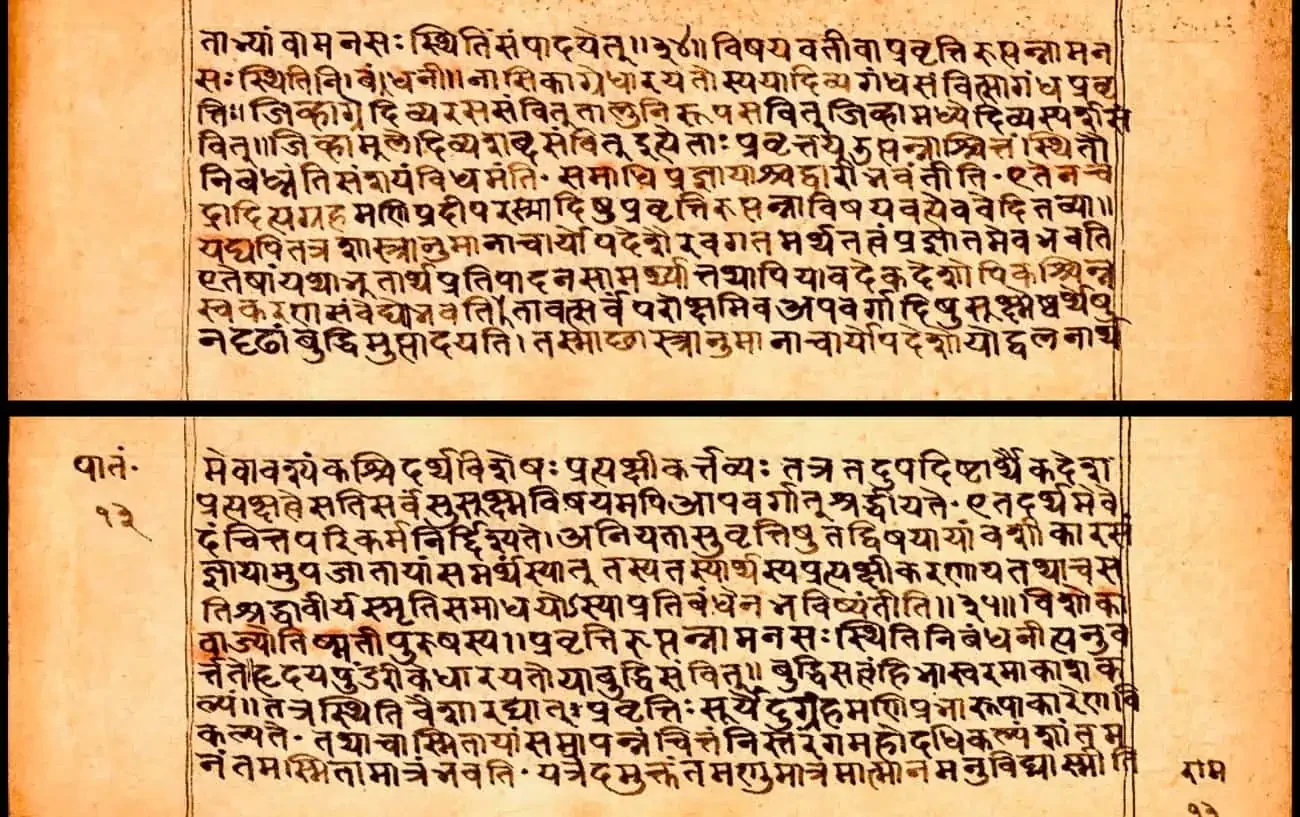 ताभ्यां वा मनसः स्थितिं संपादयेत्॥३४॥ विषयवती वा प्रवृत्तिरुत्पन्ना मन
सः स्थितिनिबंधनी॥ नासिकाग्रे धारयतोस्य या दिव्यगंधसंवित्सा गंधप्रवृ
त्तिः॥ जिव्हाग्रे दिव्यरससंवित् तालुनि रूपसंवित् जिव्हामध्ये दिव्यस्पर्शसं
वित्॥ जिव्हामुले दिव्यशब्दसंवित् इत्येताः प्रवृत्तय उत्पन्नाश्चित्तं स्थितौ
निबध्नंति संशयं विधमंति॰ समाधिप्रज्ञायाश्च द्वारी भवंतीति॰ एतेन चं
द्रादित्यग्रहमणिप्रदीपरस्मादिषु प्रवृत्तिरुत्पन्ना विषयवत्येव वेदितव्या॥
यद्यपि तत्र शास्त्रानुमानाचार्योपदेशैरवगतमर्थतत्वं प्रज्ञातमेव भवति
एतेषां यथाभुतार्थप्रतिपादनसामर्थ्यात्तथापि यावदेकदेशोपि कश्चिन्न
स्वकरणसंवेद्यो भवति। तावत्सर्वं परोक्षमिव अपवर्गादिषु सुक्ष्मेष्वर्थेषु
न दृढां बुद्धिमुत्पादयति। तस्माछास्त्रानुमानाचार्योपदेशोपोद्वलनार्थ
पातं॰
१३
मेवावश्यं कश्चिदर्थविशेषः प्रत्यक्षीकर्त्तव्यः तत्र तदुपदिष्टार्थैकदेश
प्रत्यक्षत्वे सति सर्वं सुसुक्ष्मविषयमपि आपवर्गात् श्रद्धीयते॰ एतदर्थमेवे
दं चित्तपरिकर्म निर्द्दिश्यते। अनियतासु वृत्तिषु तद्विषयायां वशीकारसं
ज्ञायामुपजातायां समर्थ्यं स्यात् तस्य तस्यार्थस्य प्रत्यक्षीकरणाय तथा च स
ति श्रद्धावीर्यस्मृतिसमाधयोऽस्याप्रतिबंधेन भविष्यंतीति॥३५॥ विशोका
वा ज्योतिष्मती पुरुषस्य॥ प्रवृत्तिरुत्पन्ना मनसः स्थितिनिबंधनीत्यनुव
र्त्तते। हृदयपुंडरीके धारयतो या बुद्धिसंवित्॥ बुद्धिसत्वं हि भास्वरमाकाशक
ल्पं॥ तत्र स्थितिवैशारद्यात् प्रवृत्तिः सूर्येंदुग्रहमणिप्रभारूपाकारेण वि
कल्पते॰ तथा चास्मितायां समापन्नं चित्तं निस्तरंगमहोदधिकल्पं शांतम
नंतमस्मितामात्रं भवति॰ यत्रेदमुक्तं तमणुमात्रमात्मानमनुविद्यास्मीति
राम
१३